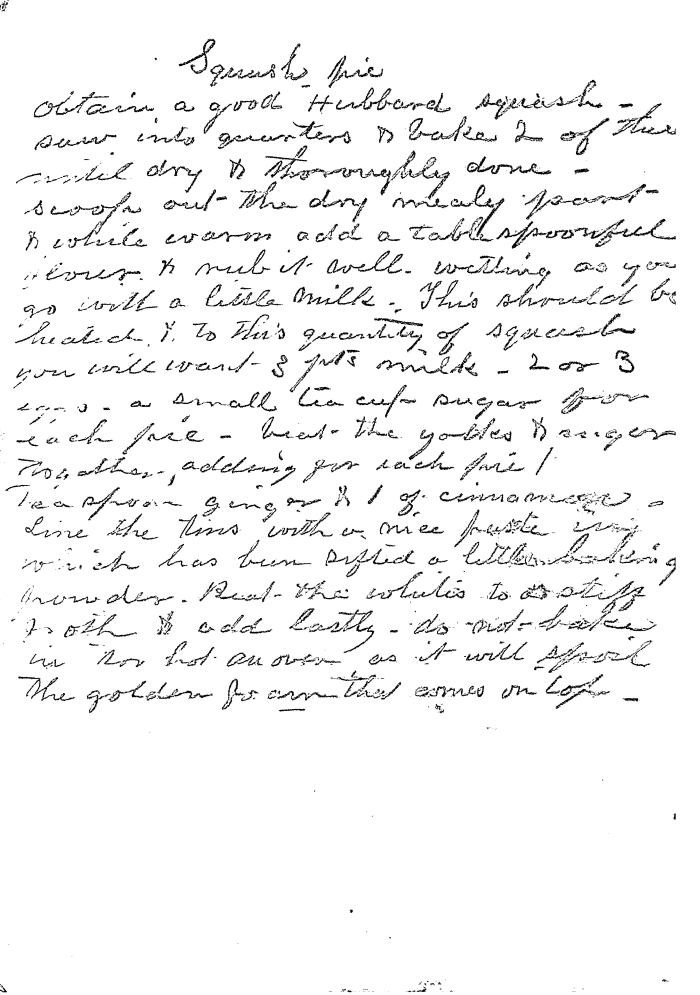 Squash pie
obtain a good Hubbard squash -
saw into quarters & bake 2 of them
until dry & thoroughly done -
scoop out the dry mealy part
& while warm add a tablespoonful
flour & rub it well. wetting as you
go with a little milk. This should be
heated &. to this quantity of squash
you will want 3 pts milk - 2 or 3
eggs - a small tea cup sugar for
each pie - beat the yolkes & sugar
together, adding for each pie 1
Teaspoon ginger & 1 of cinnamon -
Line the tins with a nice paste in
which has been sifted a little baking
powder. Beat the whites to a stiff
froth & add lastly - do not bake
in too hot an oven, as it will spoil
the golden foam that comes on top -